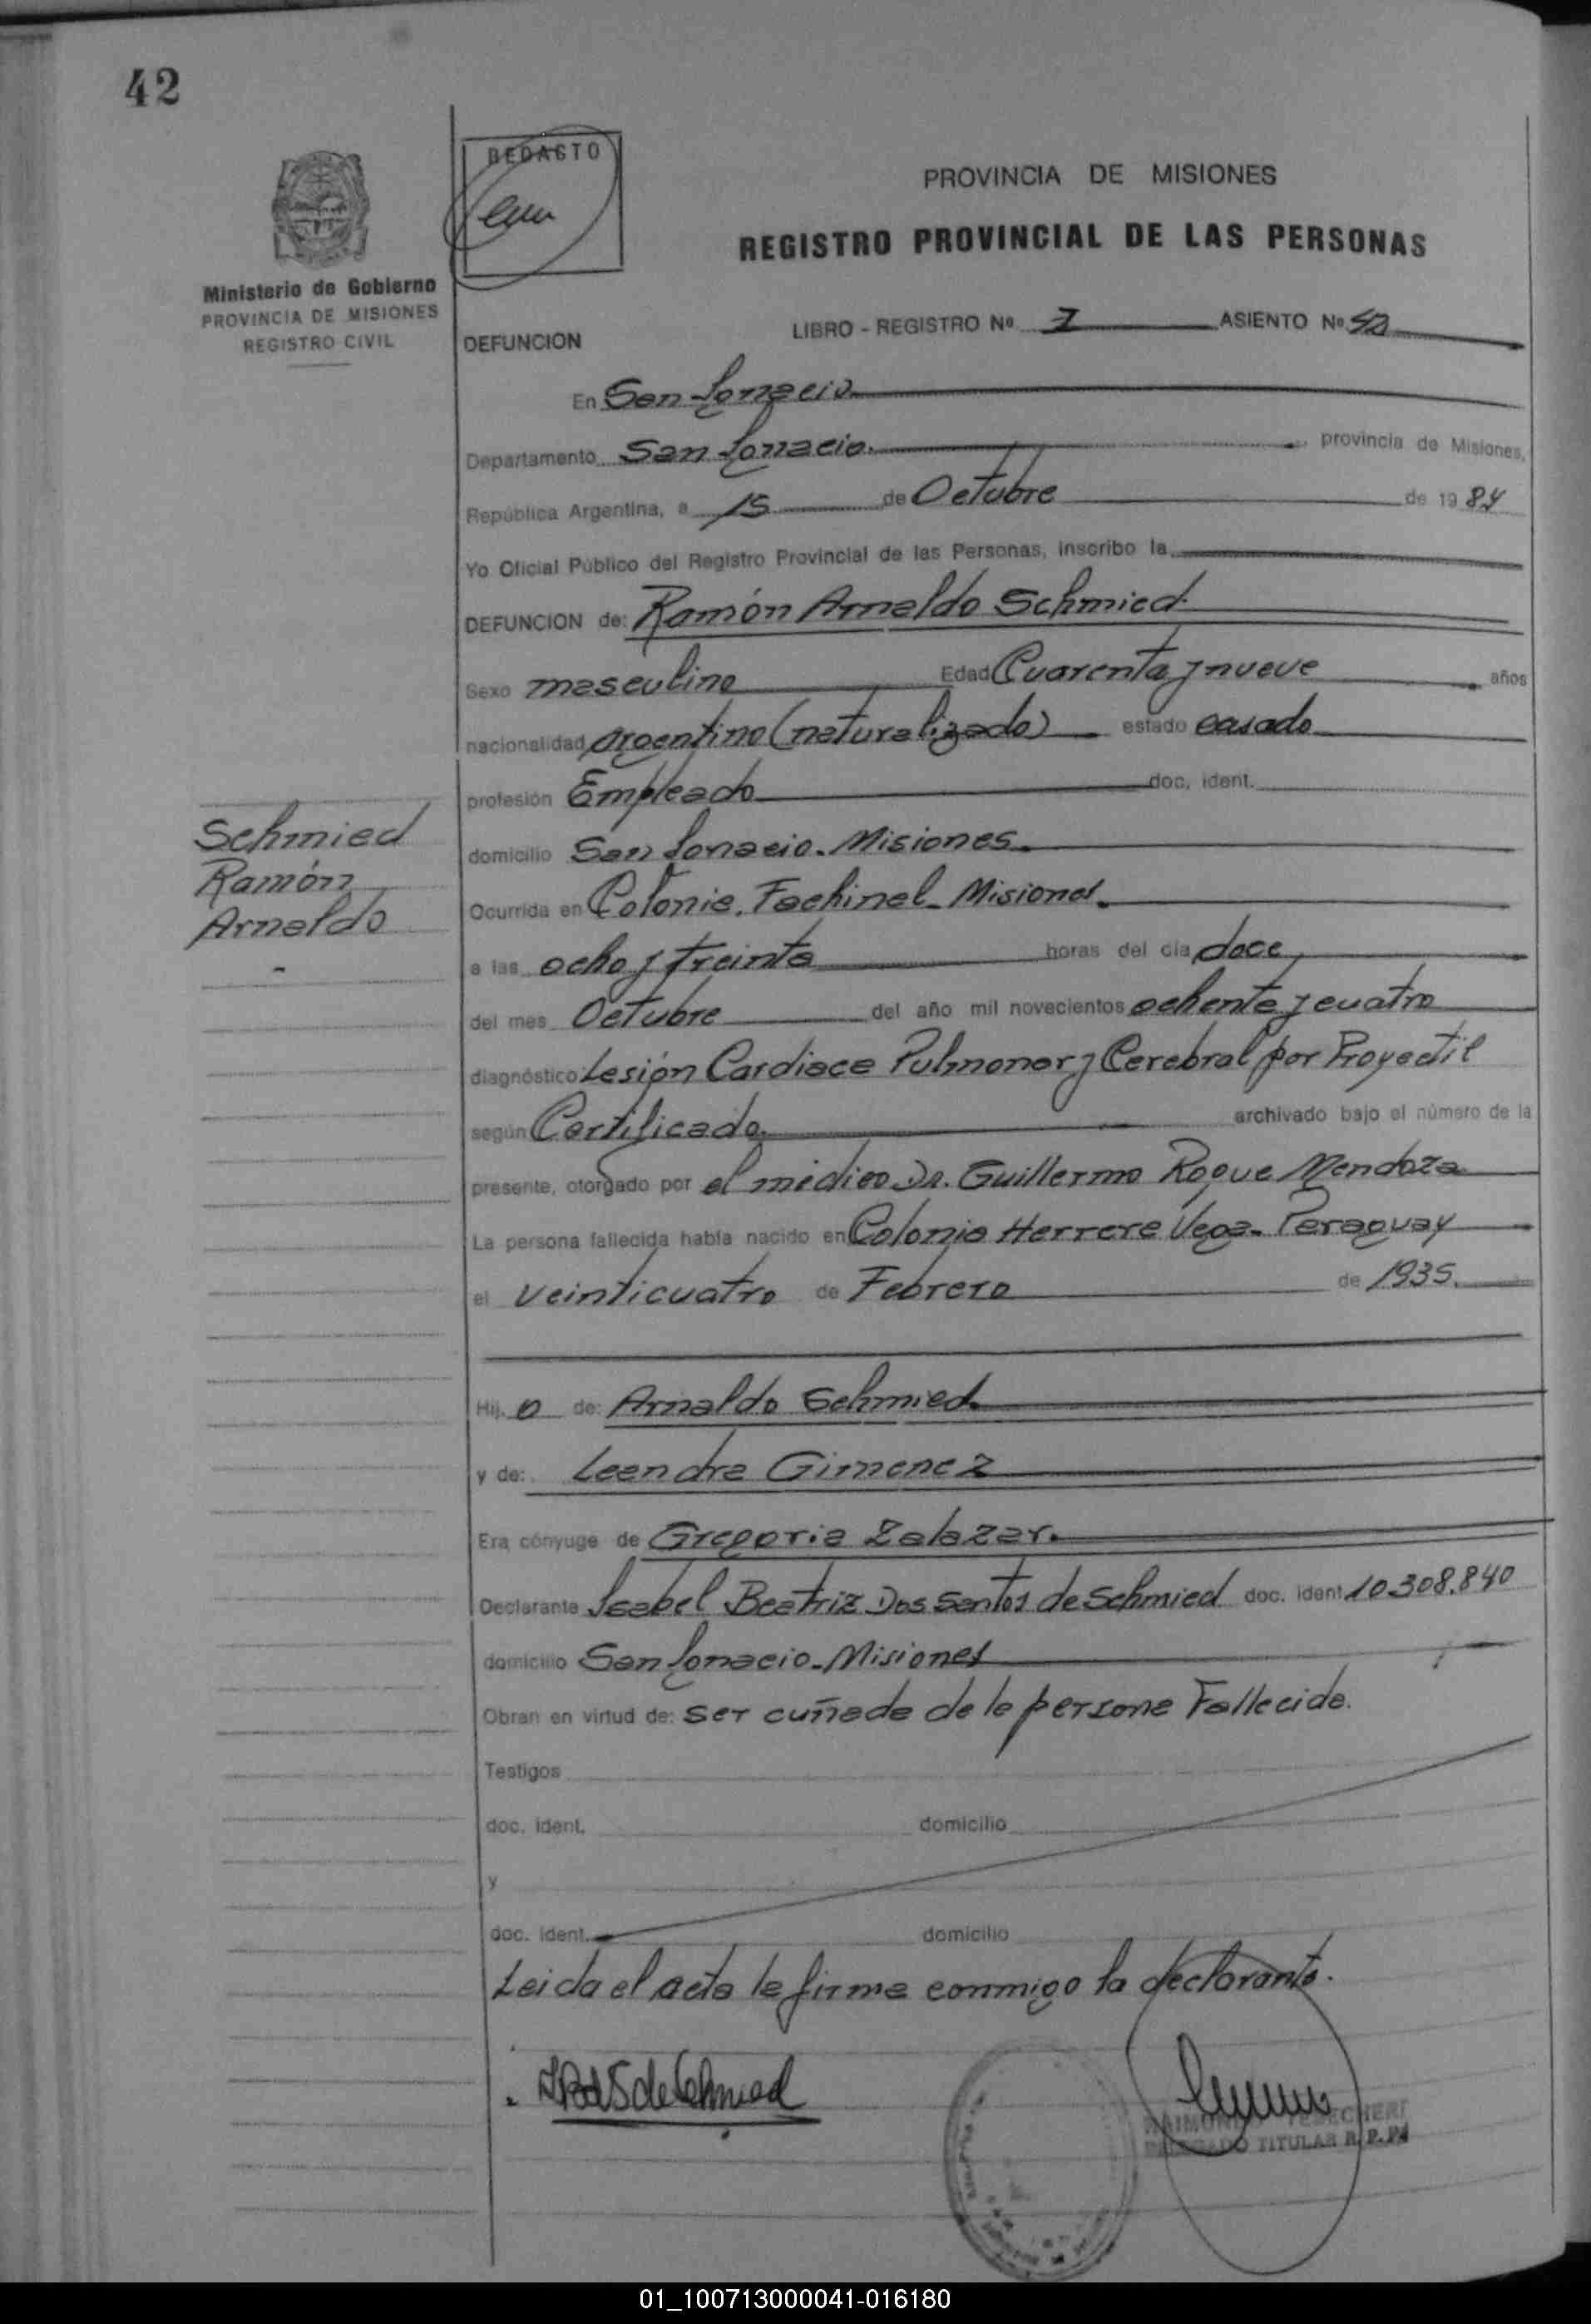 42
REDACTO
PROVINCIA DE MISIONES
REGISTRO PROVINCIAL DE LAS PERSONAS
Ministerio de Gobierno
PROVINCIA DE MISIONES
REGISTRO CIVIL
LIBRO - REGISTRO Nº I ASIENTO Nº 42
DEFUNCION
En San Ignacio
Departamento San Ignacio. provincia de Misiones,
República Argentina, a 15 de Octubre de 1984
Yo Oficial Público del Registro Provincial de las Personas, inscribo la
DEFUNCION de: Ramón Arnaldo Schmied.
Sexo masculino Edad Cuarenta y nueve años
nacionalidad argentino (naturalizado) estado casado
profesión Empleado doc. ident.
Schmied
Ramón
Arnaldo
domicilio San Ignacio. Misiones.
Ocurrida en Colonia. Fachinal - Misiones.
a las ocho y treinta horas del día doce
del mes Octubre del año mil novecientos ochenta y cuatro
diagnóstico Lesión Cardiaca Pulmonar y Cerebral por Proyectil
según Certificado. archivado bajo el número de la
presente, otorgado por el médico Dr. Guillermo Roque Mendoza
La persona fallecida había nacido en Colonia Herrera Vega - Paraguay
el veinticuatro de Febrero de 1935.
Hij o de: Arnaldo Schmied.
y de: Leandra Gimenez
Era cónyuge de Gregoria Zalazar.
Declarante Isabel Beatriz Dos Santos de Schmied doc. ident 10.308.840
domicilio San Ignacio - Misiones
Obran en virtud de: ser cuñada de la persona Fallecida.
Testigos
doc. ident. domicilio
y
doc. ident. domicilio
Leida el acta la firma conmigo la declarante.
de Schmied
TITULAR R.P.P.
01_100713000041-016180